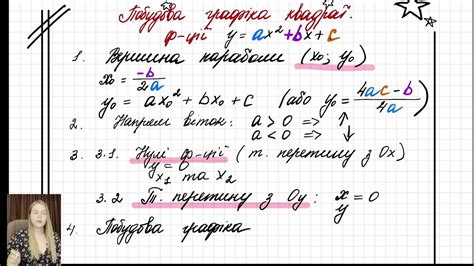 Побудова графіка квадрат.
ф-ції y = ax² + bx + c
1. Вершина параболи (x₀; y₀)
x₀ = -b/2a
y₀ = ax₀² + bx₀ + c (або y₀ = 4ac-b/4a)
2. Напрям віток: a > 0 => ↑
a < 0 => ↓
3. 3.1. Нулі ф-ції (т. перетину з Ox)
y = 0
x₁ та x₂
3.2 Т. перетину з Oy: x = 0
y
4. Побудова графіка